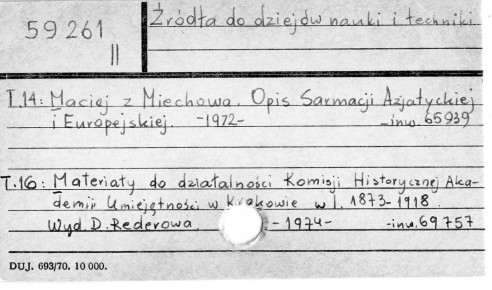 59 261
II
Źródła do dziejów nauki i techniki.
T.14: Maciej z Miechowa. Opis Sarmacji Azjatyckiej
i Europejskiej. -1972- -inw. 65939
T.16: Materiały do działalności Komisji Historycznej Aka-
demii Umiejętności w Krakowie w l. 1873-1918.
Wyd. D. Rederowa. -1974- -inw. 69757
DUJ. 693/70. 10 000.